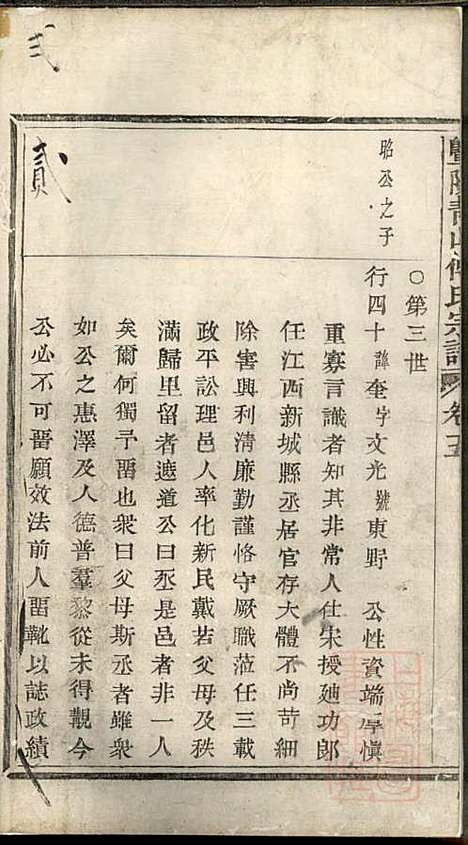 暨陽青山傅氏宗譜 卷五
〇第三世
昭公之子
行四十諱奎字文光號東野 公性資端厚慎
重寡言識者知其非常人仕宋授廸功郎
任江西新城縣丞居官存大體不尚苛細
除害興利清廉勤謹恪守厥職蒞任三載
政平訟理邑人率化新民戴若父母及秩
滿歸里留者遮道公曰丞是邑者非一人
矣爾何獨予畱也衆曰父母斯丞者雖衆
如公之惠澤及人德普羣黎從未得覩今
公必不可畱願效法前人畱靴以誌政績
貳
弎